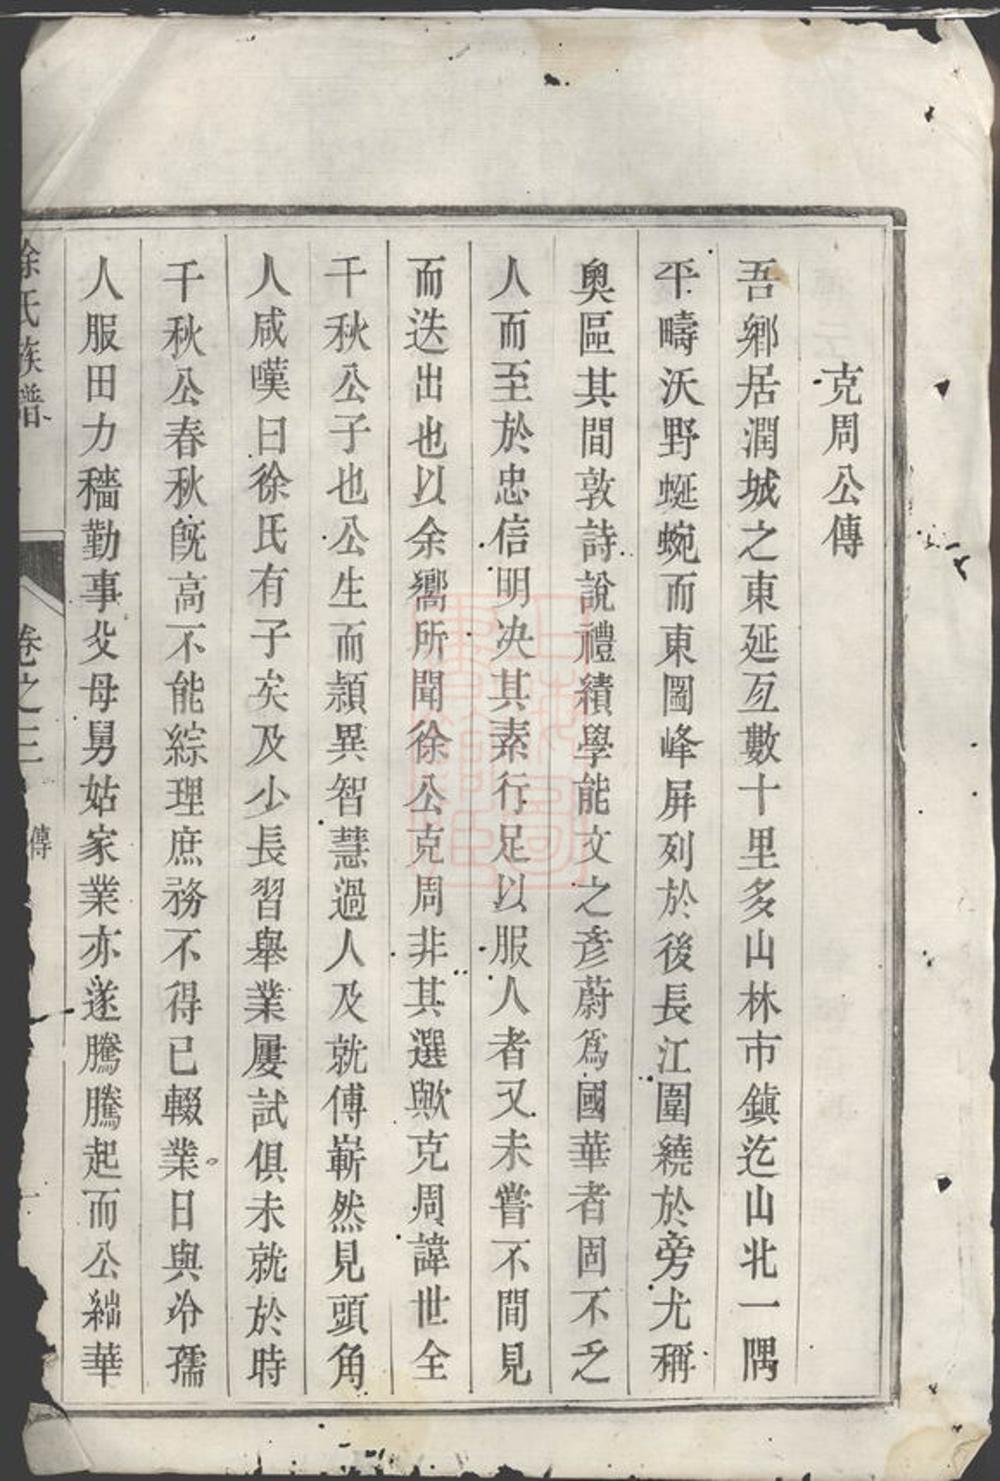 克周公傳
吾鄉居潤城之東延亙數十里多山林市鎮迄山北一隅
平疇沃野蜿蜒而東圌峰屏列於後長江圍繞於旁尤稱
奧區其間敦詩說禮績學能文之彥蔚爲國華者固不乏
人而至於忠信明决其素行足以服人者又未嘗不間見
而迭出也以余嚮所聞徐公克周非其選歟克周諱世全
千秋公子也公生而頴異智慧過人及就傅嶄然見頭角
人咸嘆曰徐氏有子矣及少長習舉業屢試俱未就於時
千秋公春秋旣高不能綜理庶務不得已輟業日與冷孺
人服田力穡勤事父母舅姑家業亦遂騰騰起而公絀華
徐氏族譜 卷之三 傳 一